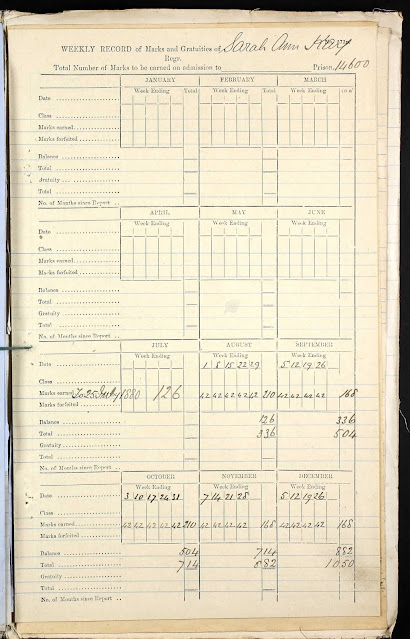 WEEKLY RECORD of Marks and Gratuities of Sarah Ann
Regr.
Total Number of Marks to be earned on admission to Prison, 14600
JANUARY FEBRUARY MARCH
Week Ending Total Week Ending Total Week Ending
Date
Class
Marks earned
Marks forfeited
Balance
Total
Gratuity
Total
No. of Months since Report
APRIL MAY JUNE
Week Ending Week Ending Week Ending
Date
Class
Marks earned
Marks forfeited
Balance
Total
Gratuity
Total
No. of Months since Report
JULY AUGUST SEPTEMBER
Week Ending Week Ending Week Ending
Date 1 8 15 22 29 5 12 19 26
Class
Marks earned To 25 July 1880 126 42 42 42 42 42 210 42 42 42 42 168
Marks forfeited
Balance 126 336
Total 336 504
Gratuity
Total
No. of Months since Report
OCTOBER NOVEMBER DECEMBER
Week Ending Week Ending Week Ending
Date 3 10 17 24 31 7 14 21 28 5 12 19 26
Class
Marks earned 42 42 42 42 42 210 42 42 42 42 168 42 42 42 42 168
Marks forfeited
Balance 504 714 882
Total 714 882 1050
Gratuity
Total
No. of Months since Report